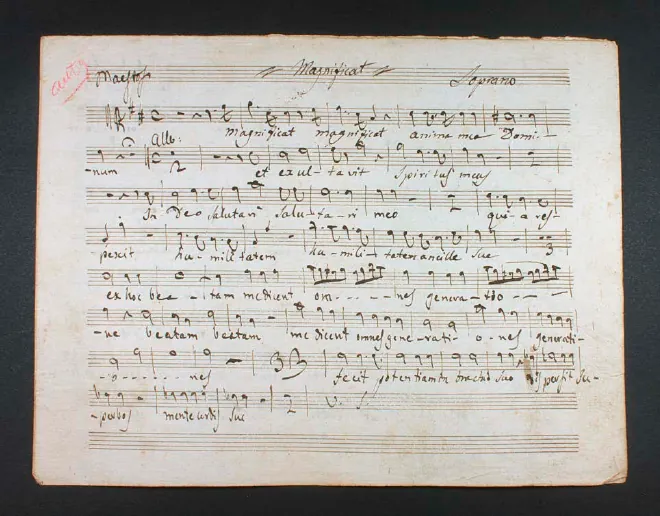 Maestoso Magnificat Soprano
magnificat magnificat anima mea Domi-
Allo:
-num et exul-tavit Spiritus meus
In Deo salutari salu-ta-ri meo quia res-
pexit humilitatem humili-tatem ancille sue
3
ex hoc bea-itam me dicent om-----nes genera-tio---
-ne beatam beatam me dicent omnes gene-rati-o-nes generati-
-o-----nes 33 fecit potentiam in brachio suo dispersit su-
-perbos mente cordis sui 2 V. S.